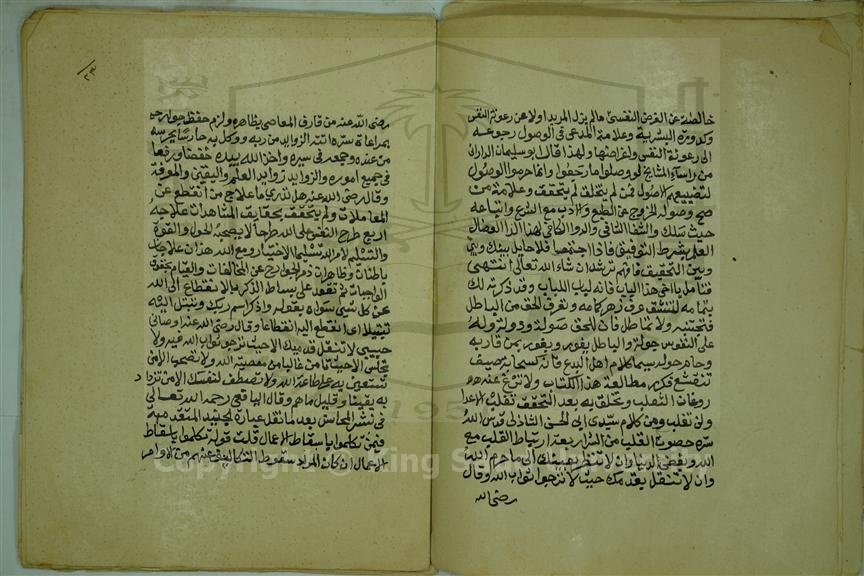 خالصة عن الغرض النفسي ما لم يزل المريد اولا عن رعونة النفس
وكدورة البشرية وعلامة المدعى في الوصول رجوعه
الى رعونة النفس واغراضها ولهذا قال ابو سليمان الداراني
من رأساء المشايخ لو وصلوا ما رجعوا وانما حرموا الوصول
لتضييعهم الاصول فمن لم يتخلق لم يتحقق وعلامة من
صح وصوله الخروج عن الطبع والادب مع الشرع واتباعه
حيث سلك والشفا الشافي والدوا الكافي لهذا الدا العضال
العلم بشرط التوفيق فاذا اجتمعا فلا حايل بينك
وبين التحقيق فافهم ترشد ان شاء الله تعالى انتهى
فتأمل يا اخي هذا الباب فانه لباب اللباب وقد ذكرته لك
بتمامه لتنشق عرف زهر كمامه وتعرف الحق من الباطل
فتجتنبه ولا تماطل فان للحق صولة ودولة وله
على النفوس جولة والباطل يفور ويغور بمن قاربه
وحام حوله سيما كلام اهل البدع فانه كسحابة صيف
تنقشع فكرر مطالعة هذا الكتاب ولا تنزع عنه
روغات الثعلب وتخلق به بعد التحقق تغلب الاعدا
ولن تغلب ومن كلام سيدي ابى الحسن الشاذلي قدس الله
سره حصون القلب من الشرار بعد ارتباط القلب مع
الله وبغض الدنيا وان لا تنظر بعينك الى ما حرم الله
وان لا تنقل قدمك حيث لا ترجو ثواب الله وقال
رضي الله
٢٣
رضى الله عنه من فارق المعاصي بظاهره ولزم حفظ جوارحه
بمراعاة سره اتته الزوايد من ربه ووكل به حارسا يحرسه
من عنده وجمعه في سيره واخذ الله بيده خفضا ورفعا
في جميع اموره والزوايد زوايد العلم واليقين والمعرفة
وقال رضى الله عنه هل تدري ما علاج من انقطع عن
المعاملات ولم يتحقق بحقايق المشاهدات علاجه
اربع طرح النفس على الله طرحا لا يصحبه الحول والقوة
والتسليم لامر الله تسليما لا اختيار مع الله هذان علاجان
باطنان وظاهران ذم الجوارح عن المخالفات والقيام بحقوق
الواجبات ثم تقعد على بساط الذكر بالانقطاع الى الله
عن كل شيئ سواه بقوله واذكر اسم ربك وتبتل اليه
تبتيلا اى انقطع اليه انقطاعا وقال رضى الله عنه اوصاني
حبيبي لا تنقل قدميك الا حيث ترجو ثواب الله فيه ولا
تجلس الا حيث تأمن غالبا من معصية الله ولا تصحب الا من
تستعين به على طاعة الله ولا تصطف لنفسك الا من تزداد
به يقينا وقليل ما هم وقال اليافعي رحمه الله تعالى
في نشر المحاسن بعد ما نقل عبارة الجنيد المتقدمة
فيمن تكلموا باسقاط الاعمال قلت قوله تكلموا باسقاط
الاعمال ان كان المراد سقوط التكاليف عنهم من الاوامر
Copyright © King Saud University
195